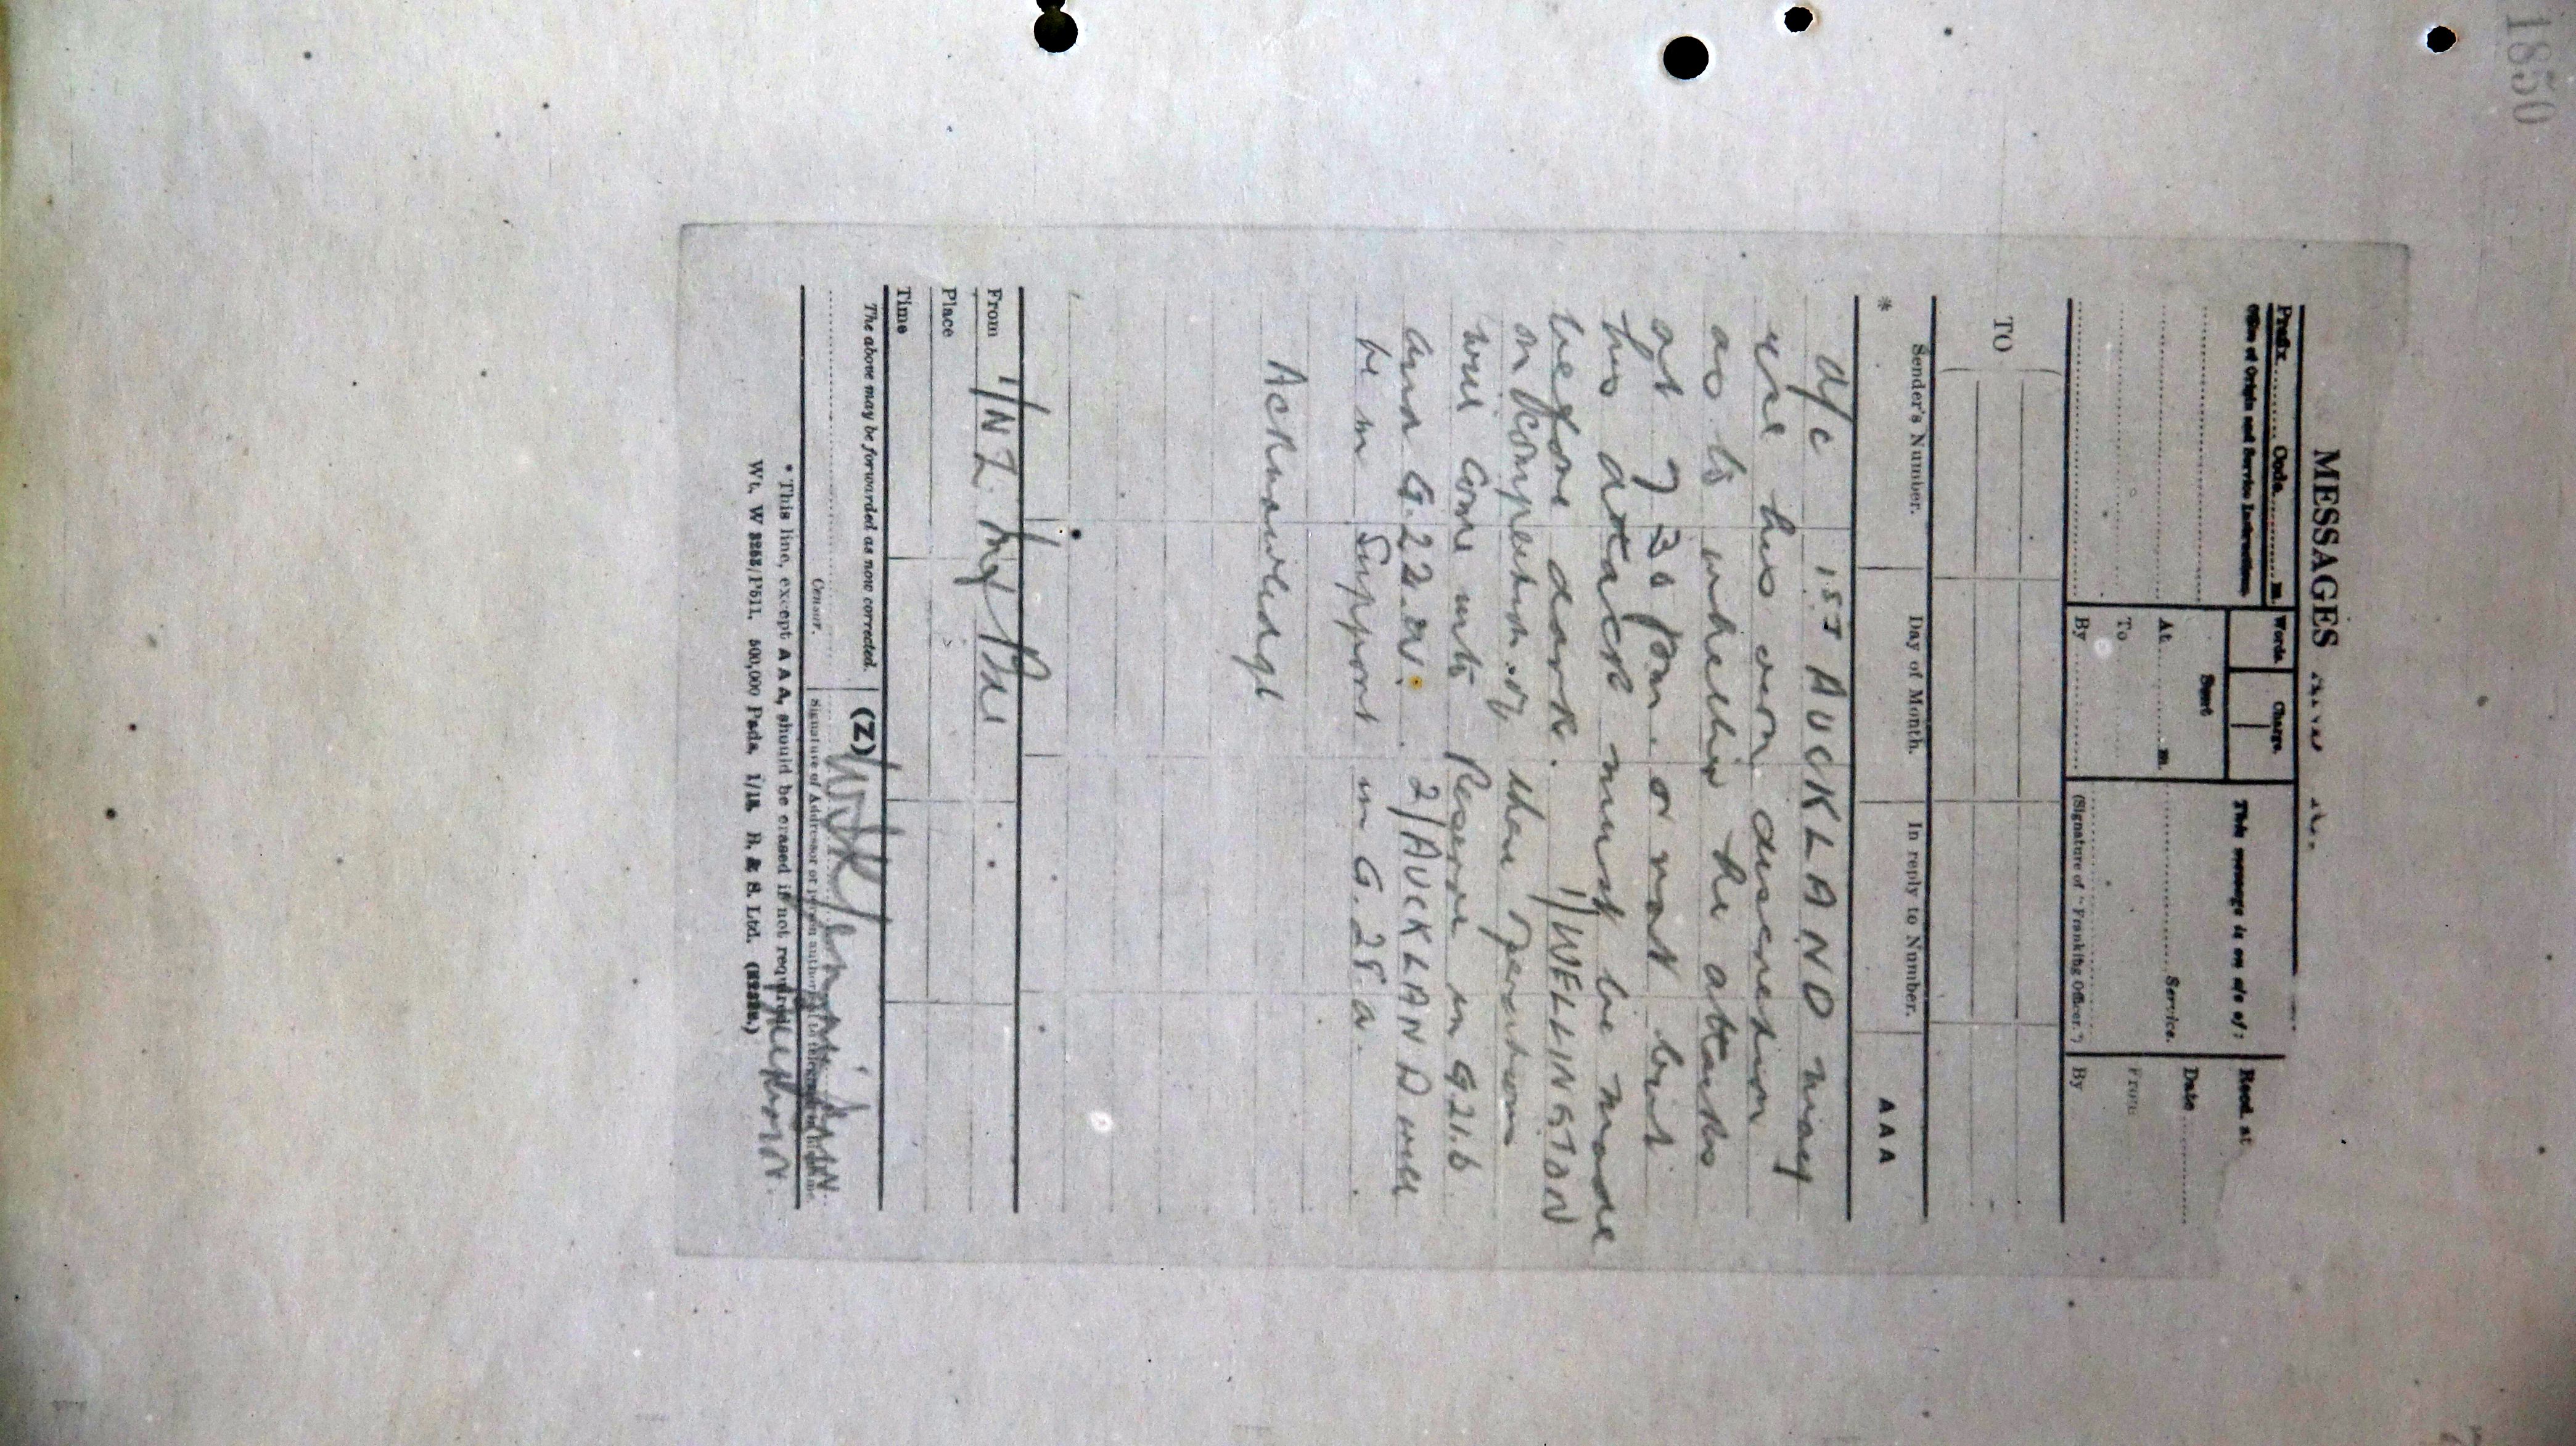 1850
MESSAGES
Prefix Code m. Words. Charge. This message is on a/c of: Recd. at
Office of Origin and Service Instructions.
Sent
At m. Service. Date
To From
By (Signature of "Franking Officer.") By
TO
Sender's Number. Day of Month. In reply to Number. AAA
*
O/C 1ST AUCKLAND may
use his own discretion
as to whether he attacks
at 7 30 pm. or not but
his attack must be made
before dark. 1/WELLINGTON
on completion of the operation
will come into Reserve in G21.b
and G.22.a. 2/AUCKLAND will
be in Support in G.28.a.
Acknowledge
From 1/NZ Inf Bde
Place
Time
The above may be forwarded as now corrected. (Z)
Censor. Signature of Addressor or person authorised to telegraph in his name
* This line, except AAA, should be erased if not required.
Wt. W 3253/P511. 500,000 Pads. 1/18. B. & S. Ltd.